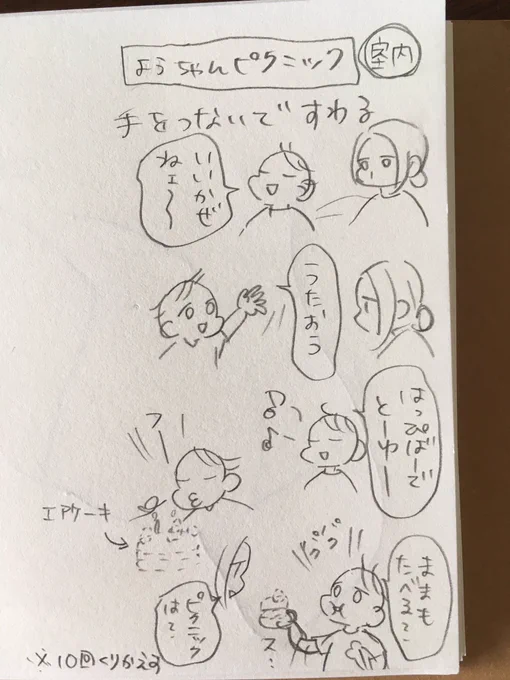 ようちゃんピクニック
室内
手をつないですわる
いいかぜ
ねェ〜
うたおう
はっぴばーで
とーゆー
エアケーキ
ままも
たべる?
パクパク
ス…
ピクニック
は?
※10回くりかえす